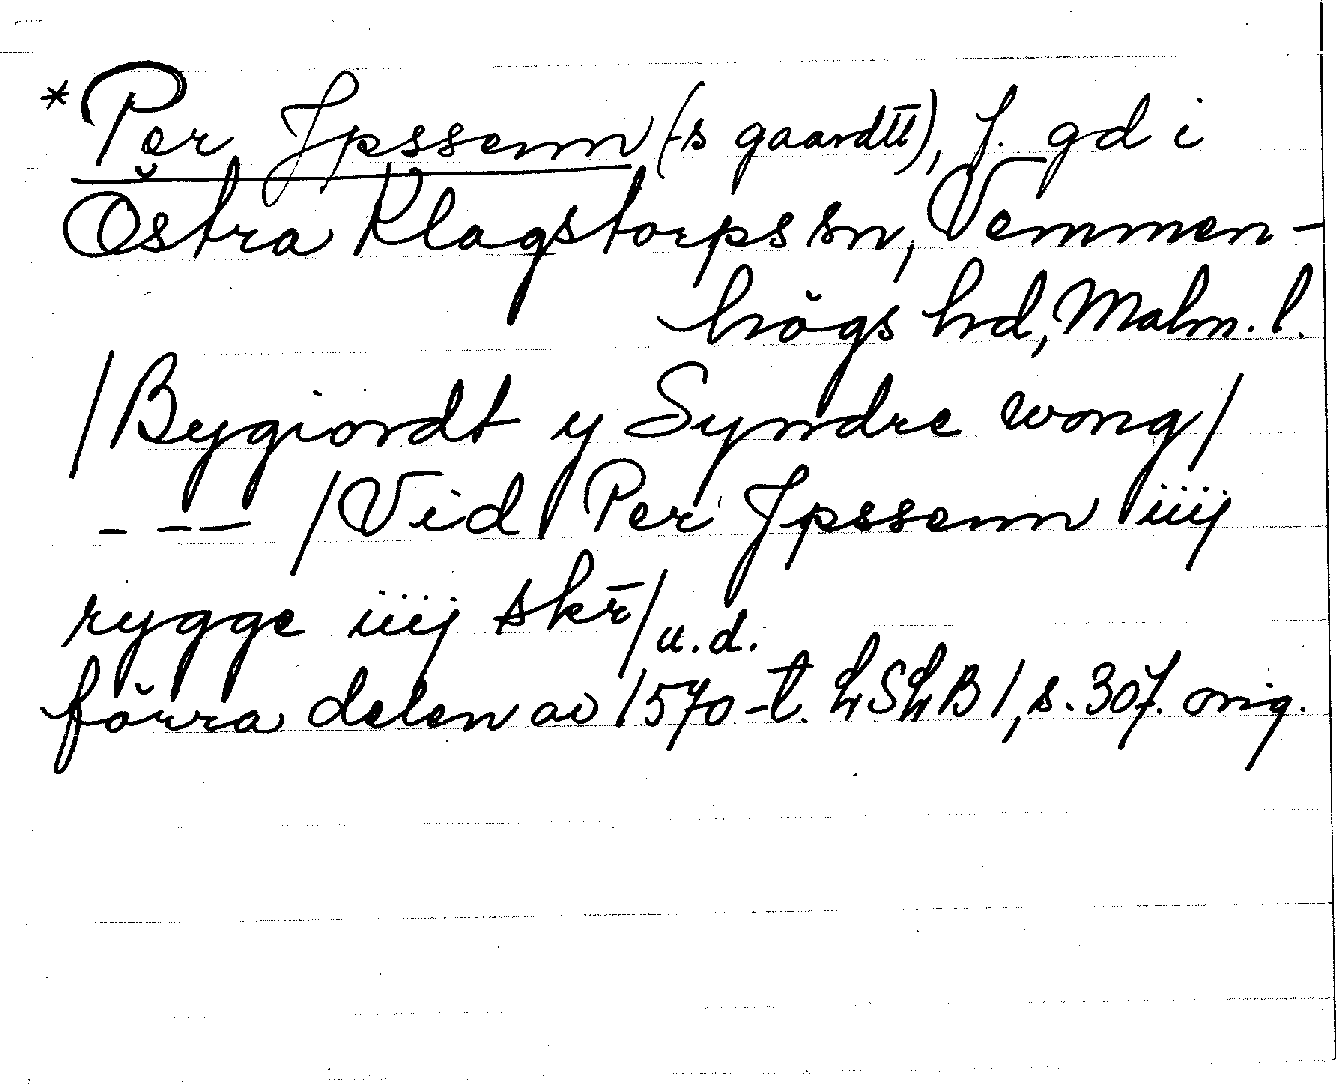 *Per Jpssenn (-s gaardtt), f. gd i
Östra Klagstorps sn, Vemmen-
högs hd, Malm. l.
/Bygiordt y Syndre wong/
- -- /Vid Per Jpssenn iiij
rygge iiij skr̄/ u.d.
förra delen av 1570-t. LSLB 1, s. 307. orig.